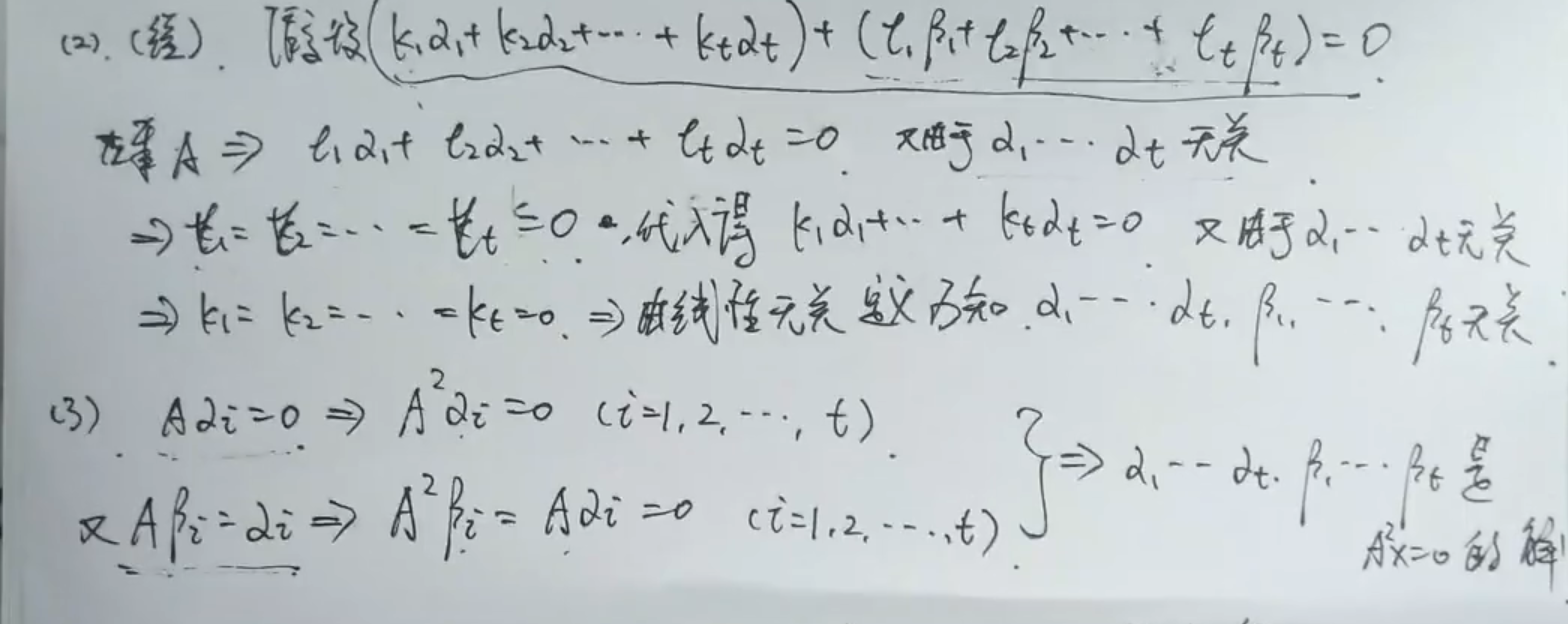 (2). (经). 假设(k₁α₁+k₂α₂+⋯+kₜαₜ)+(ℓ₁β₁+ℓ₂β₂+⋯+ℓₜβₜ)=0.
左乘A⇒ ℓ₁α₁+ℓ₂α₂+⋯+ℓₜαₜ=0. 又由于α₁⋯αₜ无关.
⇒ℓ₁=ℓ₂=⋯=ℓₜ=0.代入得 k₁α₁+⋯+kₜαₜ=0. 又由于α₁⋯αₜ无关
⇒k₁=k₂=⋯=kₜ=0.⇒由线性无关定义可知.α₁⋯αₜ,β₁,⋯,βₜ无关.
(3) Aαᵢ=0⇒A²αᵢ=0 (i=1,2,⋯,t).
又Aβᵢ=αᵢ⇒A²βᵢ=Aαᵢ=0 (i=1,2,⋯,t).
}⇒α₁⋯αₜ.β₁⋯βₜ是
A²x=0的解